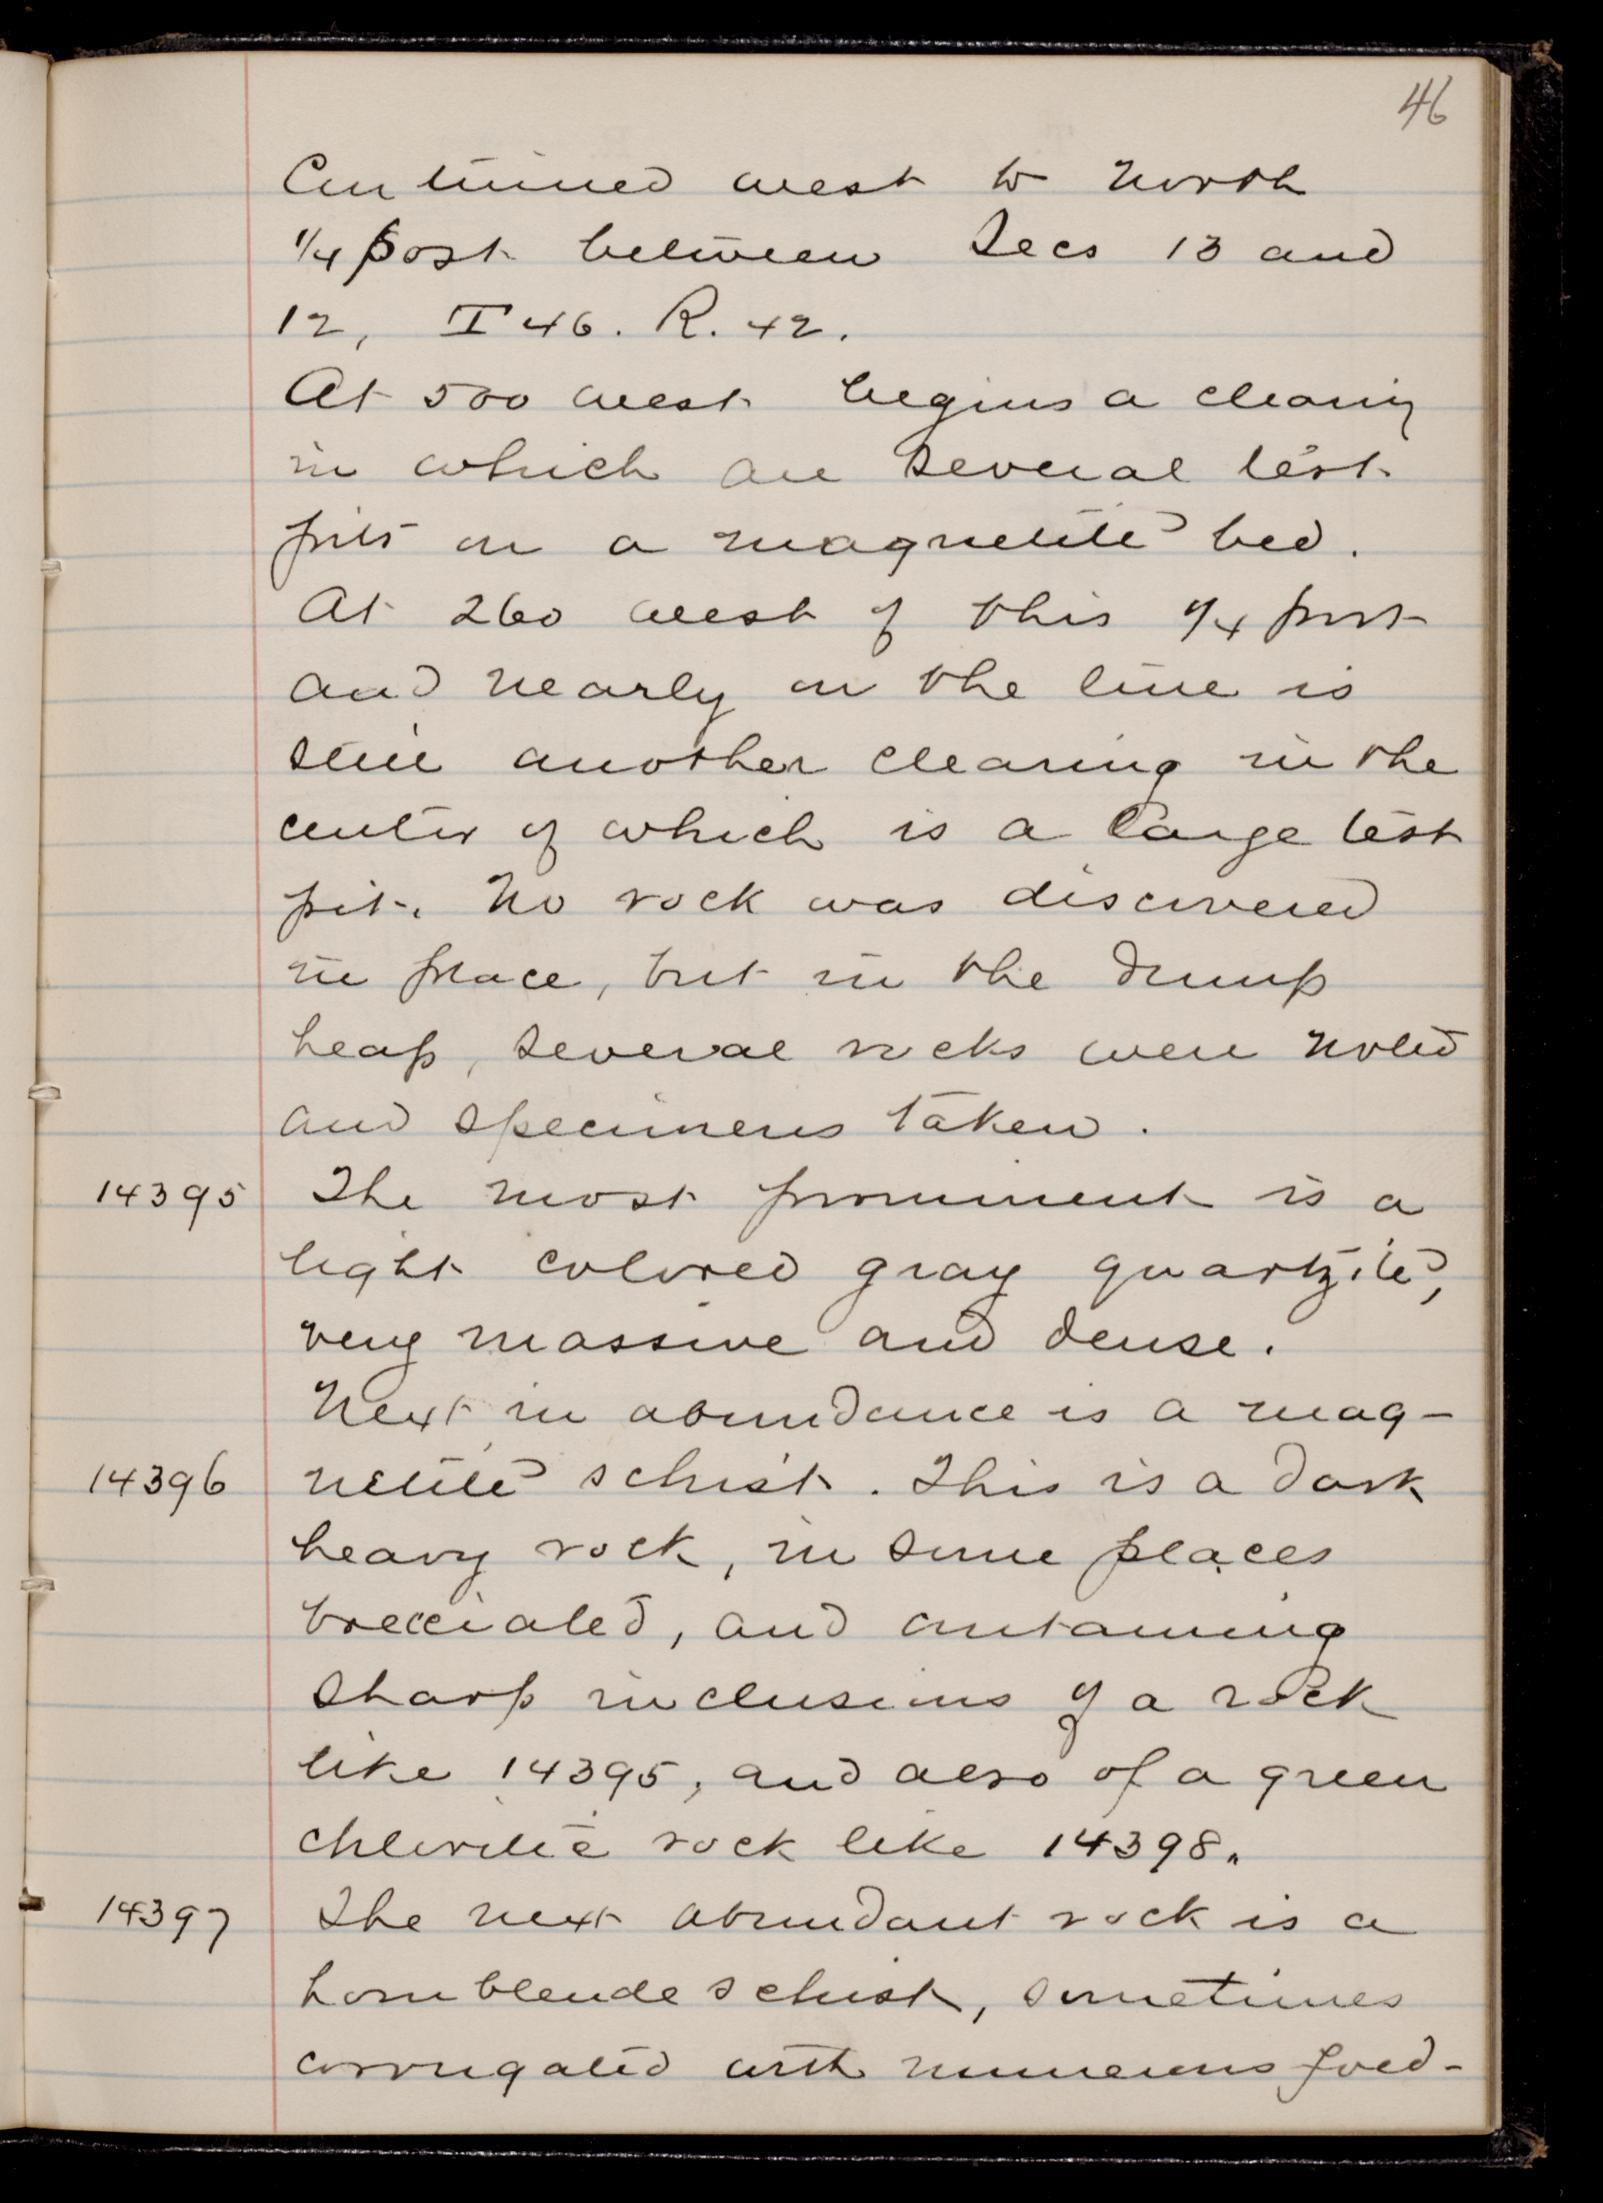 46
Continued west to North
1/4 post between Secs 13 and
12, T 46. R. 42.
At 500 west begins a clearing
in which are several test
pits on a magnetite bed.
At 260 west of this 1/4 post
and nearly on the line is
still another clearing in the
center of which is a large test
pit. No rock was discovered
in place, but in the dump
heap, several rocks were noted
and specimens taken.
14395 The most prominent is a
light colored gray quartzite,
very massive and dense.
Next in abundance is a mag-
14396 netite schist. This is a dark
heavy rock, in some places
brecciated, and containing
sharp inclusions of a rock
like 14395, and also of a green
chloritic rock like 14398.
14397 The next abundant rock is a
hornblende schist, sometimes
corrugated with numerous feld-